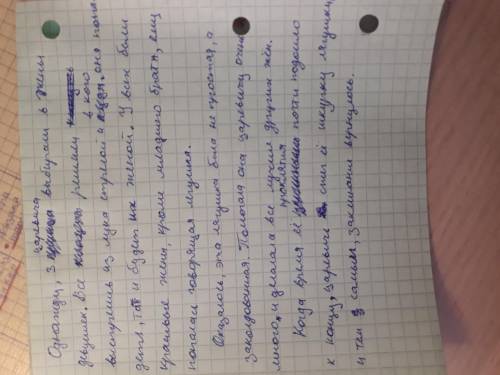 Однажды, 3 царевича выбирали в жены
девушек. Все решили
выстрелить из лука стрелой и в кого она попа-
дёт, тот и будет их женой. У всех были
красивые жены, кроме младшего брата, ему
попалась говорящая лягушка.
Оказалось, эта лягушка была не простая, а
заколдованная. Помогала она царевичу очень
много и делала все лучше других жён.
Когда время её проклятия почти подошло
к концу, царевич снял её шкурку лягушки,
и тем самым, заклинание вернулось.